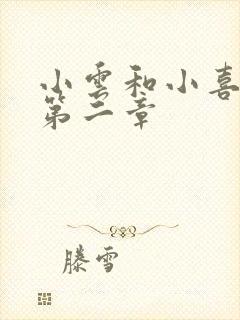 小雲和小喜
第二章
滕雪